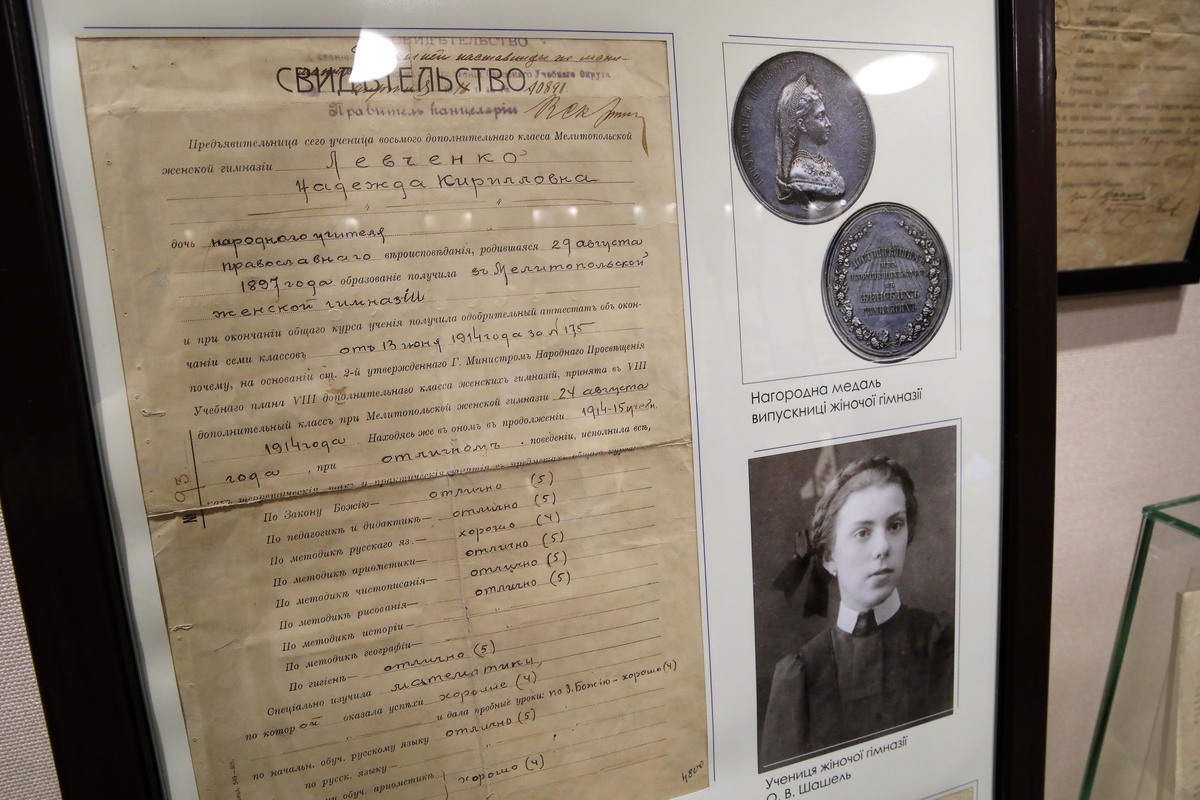 СВИДѢТЕЛЬСТВО
СВИДѢТЕЛЬСТВО
наставницы
Учебнаго Округа
10891
Правитель канцеляріи
Предъявительница сего ученица восьмого дополнительнаго класса Мелитопольской
женской гимназіи Левченко
Надежда Кирилловна
дочь народного учителя
православнаго вѣроисповѣданія, родившаяся 29 августа
1897 года образованіе получила въ Мелитопольской
женской гимназіи
и при окончаніи общаго курса ученія получила одобрительный аттестатъ объ окон-
чаніи семи классовъ отъ 13 іюня 1914 года за № 175
почему, на основаніи ст. 2-й утвержденнаго Г. Министромъ Народнаго Просвѣщенія
Учебнаго плана VIII дополнительнаго класса женскихъ гимназій, принята въ VIII
дополнительный классъ при Мелитопольской женской гимназіи 24 августа
1914 года. Находясь же въ ономъ въ продолженіи 1914-15 учебн.
года, при отличномъ поведеніи, исполнила всѣ,
какъ теоретическія такъ и практическія занятія въ предметахъ общаго курса:
№ 93
По Закону Божію— отлично (5)
По педагогикѣ и дидактикѣ— отлично (5)
По методикѣ русскаго яз.— хорошо (4)
По методикѣ ариѳметики— отлично (5)
По методикѣ чистописанія— отлично (5)
По методикѣ рисованія— отлично (5)
По методикѣ исторіи—
По методикѣ географіи—
По гигіенѣ— отлично (5)
Спеціально изучила математику,
по котор ой оказала успѣхи хорошіе (4)
и дала пробные уроки: по З. Божію – хорошо (4)
по начальн. обуч. русскому языку отлично (5)
по русск. языку—
обуч. ариѳметикѣ хорошо (4)
4800
Нагородна медаль
випускниці жіночої гімназії
Учениця жіночої гімназії
О. В. Шашель